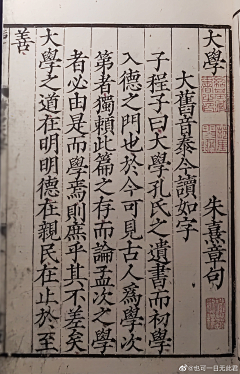 大學　朱熹章句
大舊音泰今讀如字
子程子曰大學孔氏之遺書而初學
入德之門也於今可見古人爲學次
第者獨賴此篇之存而論孟次之學
者必由是而學焉則庶乎其不差矣
大學之道在明明德在親民在止於至
善
@也可一日无此君